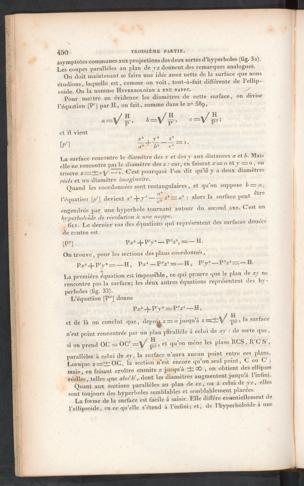 450 TROISIÈME PARTIE.
asymptotes communes aux projections des deux sortes d'hyperboles (fig. 32).
Les coupes parallèles au plan de yz donnent des remarques analogues.
On doit maintenant se faire une idée assez nette de la surface que nous
étudions, laquelle est, comme on voit, tout-à-fait différente de l'ellip-
soïde. On la nomme HYPERBOLOÏDE A UNE NAPPE.
Pour mettre en évidence les diamètres de cette surface, on divise
l'équation [P'] par H, on fait, comme dans le n° 589,
a=√H/P, b=√H/P', c=√H/P'';
et il vient
[p'] x²/a² + y²/b² − z²/c² = 1.
La surface rencontre le diamètre des x et des y aux distances a et b. Mais
elle ne rencontre pas le diamètre des z; car, en faisant x=0 et y=0, on
trouve z=±c√−1. C'est pourquoi l'on dit qu'il y a deux diamètres
réels et un diamètre imaginaire.
Quand les coordonnées sont rectangulaires, et qu'on suppose b=a,
l'équation [p'] devient x²+y²−a²/c² z²=a²; alors la surface peut être
engendrée par une hyperbole tournant autour du second axe. C'est un
hyperboloïde de révolution à une nappe.
Le dernier cas des équations qui représentent des surfaces douées
de centre est
[P''] Px²+P'y²−P''z²=−H.
On trouve, pour les sections des plans coordonnés,
Px²+P'y²=−H, Px²−P''z²=−H, P'y²−P''z²=−H.
La première équation est impossible, ce qui prouve que le plan de xy ne
rencontre pas la surface; les deux autres équations représentent des hy-
perboles (fig. 33).
L'équation [P''] donne
Px²+P'y²=P''z²−H,
et de là on conclut que, depuis z=0 jusqu'à z=±√H/P'', la surface
n'est point rencontrée par un plan parallèle à celui de xy: de sorte que,
si on prend OC=OC'=√H/P'', et qu'on mène les plans RCS, R'C'S',
parallèles à celui de xy, la surface n'aura aucun point entre ces plans.
Lorsque z=±OC, la section n'est encore qu'un seul point, C ou C';
mais, en faisant croître ensuite z jusqu'à ±∞, on obtient des ellipses
réelles, telles que aba'b', dont les diamètres augmentent jusqu'à l'infini.
Quant aux sections parallèles au plan de xz, ou à celui de yz, elles
sont toujours des hyperboles semblables et semblablement placées.
La forme de la surface est facile à saisir. Elle diffère essentiellement de
l'ellipsoïde, en ce qu'elle s'étend à l'infini; et, de l'hyperboloïde à une